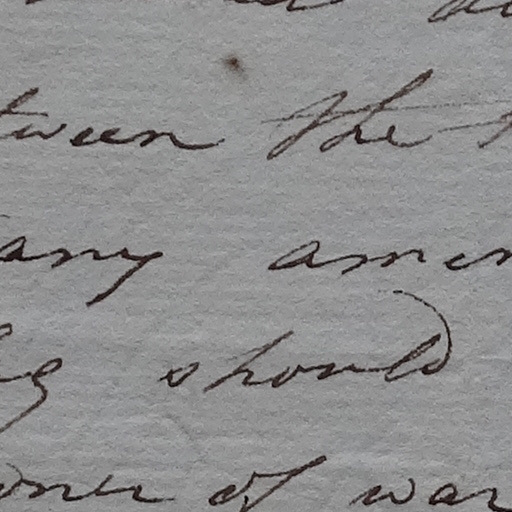 tween the
any amen
should
oner of war